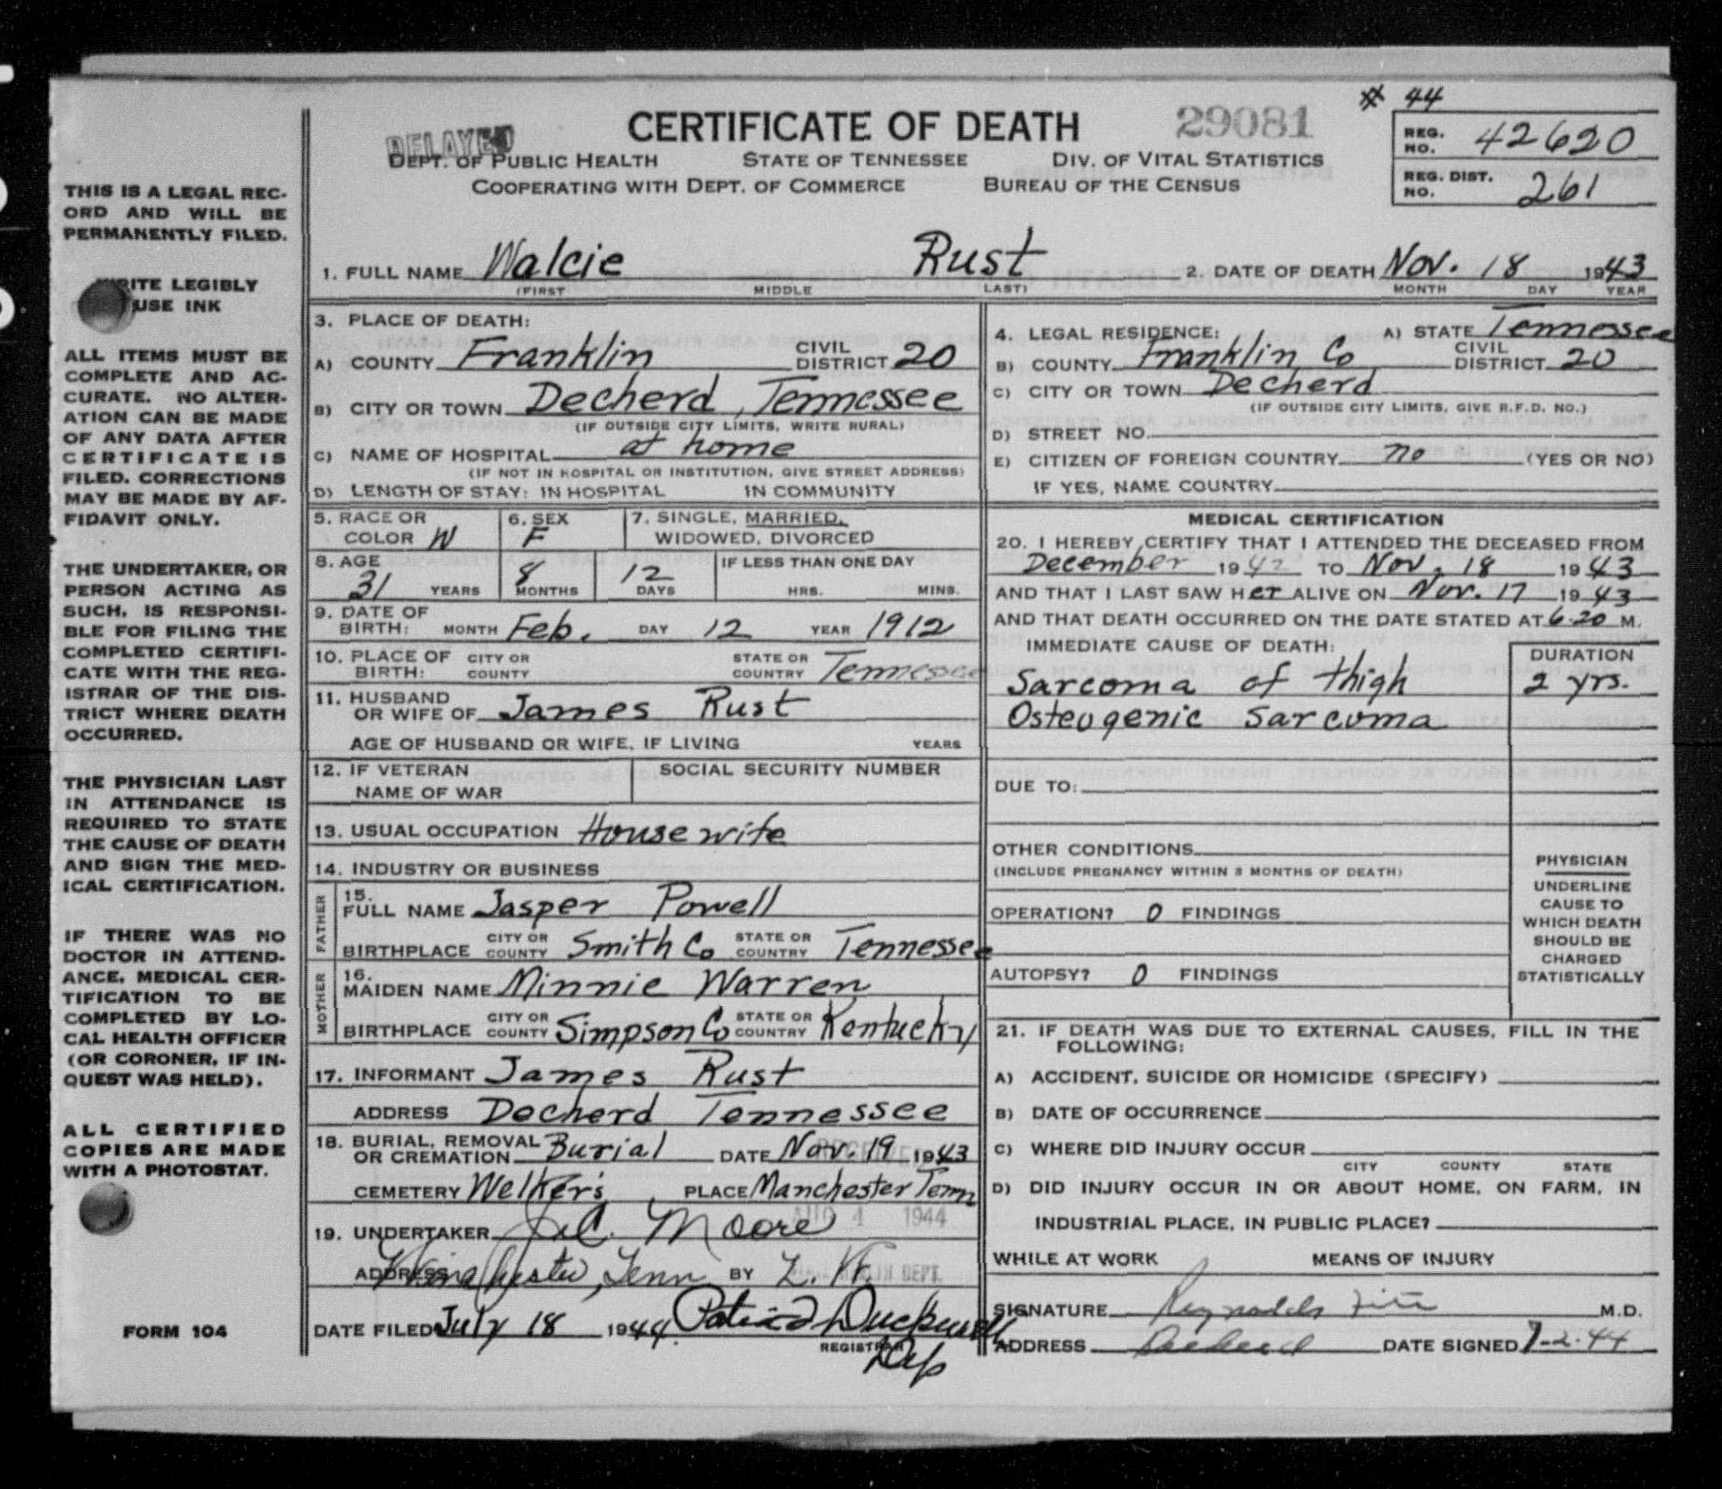 # 44
DELAYED
CERTIFICATE OF DEATH
29081
DEPT. OF PUBLIC HEALTH STATE OF TENNESSEE DIV. OF VITAL STATISTICS
COOPERATING WITH DEPT. OF COMMERCE BUREAU OF THE CENSUS
REG. NO. 42620
REG. DIST. NO. 261
THIS IS A LEGAL REC-
ORD AND WILL BE
PERMANENTLY FILED.
WRITE LEGIBLY
USE INK
ALL ITEMS MUST BE
COMPLETE AND AC-
CURATE. NO ALTER-
ATION CAN BE MADE
OF ANY DATA AFTER
CERTIFICATE IS
FILED. CORRECTIONS
MAY BE MADE BY AF-
FIDAVIT ONLY.
THE UNDERTAKER, OR
PERSON ACTING AS
SUCH, IS RESPONSI-
BLE FOR FILING THE
COMPLETED CERTIFI-
CATE WITH THE REG-
ISTRAR OF THE DIS-
TRICT WHERE DEATH
OCCURRED.
THE PHYSICIAN LAST
IN ATTENDANCE IS
REQUIRED TO STATE
THE CAUSE OF DEATH
AND SIGN THE MED-
ICAL CERTIFICATION.
IF THERE WAS NO
DOCTOR IN ATTEND-
ANCE, MEDICAL CER-
TIFICATION TO BE
COMPLETED BY LO-
CAL HEALTH OFFICER
(OR CORONER, IF IN-
QUEST WAS HELD).
ALL CERTIFIED
COPIES ARE MADE
WITH A PHOTOSTAT.
FORM 104
1. FULL NAME Walcie Rust 2. DATE OF DEATH Nov. 18 1943
(FIRST MIDDLE LAST) MONTH DAY YEAR
3. PLACE OF DEATH:
A) COUNTY Franklin CIVIL DISTRICT 20
B) CITY OR TOWN Decherd, Tennessee
(IF OUTSIDE CITY LIMITS, WRITE RURAL)
C) NAME OF HOSPITAL at home
(IF NOT IN HOSPITAL OR INSTITUTION, GIVE STREET ADDRESS)
D) LENGTH OF STAY: IN HOSPITAL IN COMMUNITY
5. RACE OR COLOR W 6. SEX F 7. SINGLE, MARRIED, WIDOWED, DIVORCED
8. AGE 31 YEARS 8 MONTHS 12 DAYS IF LESS THAN ONE DAY HRS. MINS.
9. DATE OF BIRTH: MONTH Feb. DAY 12 YEAR 1912
10. PLACE OF BIRTH: CITY OR COUNTY STATE OR COUNTRY Tennessee
11. HUSBAND OR WIFE OF James Rust
AGE OF HUSBAND OR WIFE, IF LIVING YEARS
12. IF VETERAN NAME OF WAR SOCIAL SECURITY NUMBER
13. USUAL OCCUPATION Housewife
14. INDUSTRY OR BUSINESS
FATHER
15. FULL NAME Jasper Powell
BIRTHPLACE CITY OR COUNTY Smith Co STATE OR COUNTRY Tennessee
MOTHER
16. MAIDEN NAME Minnie Warren
BIRTHPLACE CITY OR COUNTY Simpson Co STATE OR COUNTRY Kentucky
17. INFORMANT James Rust
ADDRESS Decherd Tennessee
18. BURIAL, REMOVAL OR CREMATION Burial DATE Nov. 19 1943
CEMETERY Welker's PLACE Manchester Tenn
AUG 4 1944
19. UNDERTAKER J.C. Moore
ADDRESS Winchester, Tenn BY
DATE FILED July 18 1944 REGISTRAR
Dep
4. LEGAL RESIDENCE: A) STATE Tennessee
B) COUNTY Franklin Co CIVIL DISTRICT 20
C) CITY OR TOWN Decherd
(IF OUTSIDE CITY LIMITS, GIVE R.F.D. NO.)
D) STREET NO.
E) CITIZEN OF FOREIGN COUNTRY no (YES OR NO)
IF YES, NAME COUNTRY
MEDICAL CERTIFICATION
20. I HEREBY CERTIFY THAT I ATTENDED THE DECEASED FROM
December 1942 TO Nov. 18 1943
AND THAT I LAST SAW Her ALIVE ON Nov. 17 1943
AND THAT DEATH OCCURRED ON THE DATE STATED AT 6:20 M.
IMMEDIATE CAUSE OF DEATH: DURATION
Sarcoma of thigh 2 yrs.
Osteogenic Sarcoma
DUE TO:
OTHER CONDITIONS
(INCLUDE PREGNANCY WITHIN 3 MONTHS OF DEATH)
OPERATION? 0 FINDINGS
AUTOPSY? 0 FINDINGS
PHYSICIAN
UNDERLINE
CAUSE TO
WHICH DEATH
SHOULD BE
CHARGED
STATISTICALLY
21. IF DEATH WAS DUE TO EXTERNAL CAUSES, FILL IN THE
FOLLOWING:
A) ACCIDENT, SUICIDE OR HOMICIDE (SPECIFY)
B) DATE OF OCCURRENCE
C) WHERE DID INJURY OCCUR
CITY COUNTY STATE
D) DID INJURY OCCUR IN OR ABOUT HOME, ON FARM, IN
INDUSTRIAL PLACE, IN PUBLIC PLACE?
WHILE AT WORK MEANS OF INJURY
SIGNATURE Reynolds M.D.
ADDRESS Decherd DATE SIGNED 7-2-44